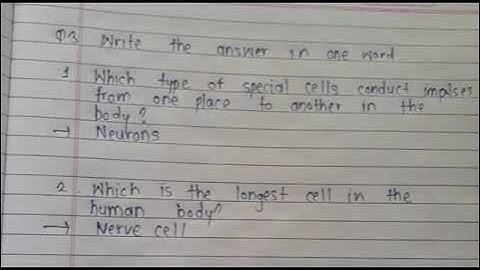 Q3 Write the answer in one word
1 Which type of special cells conduct impulses
from one place to another in the
body?
→ Neurons
2. Which is the longest cell in the
human body?
→ Nerve cell